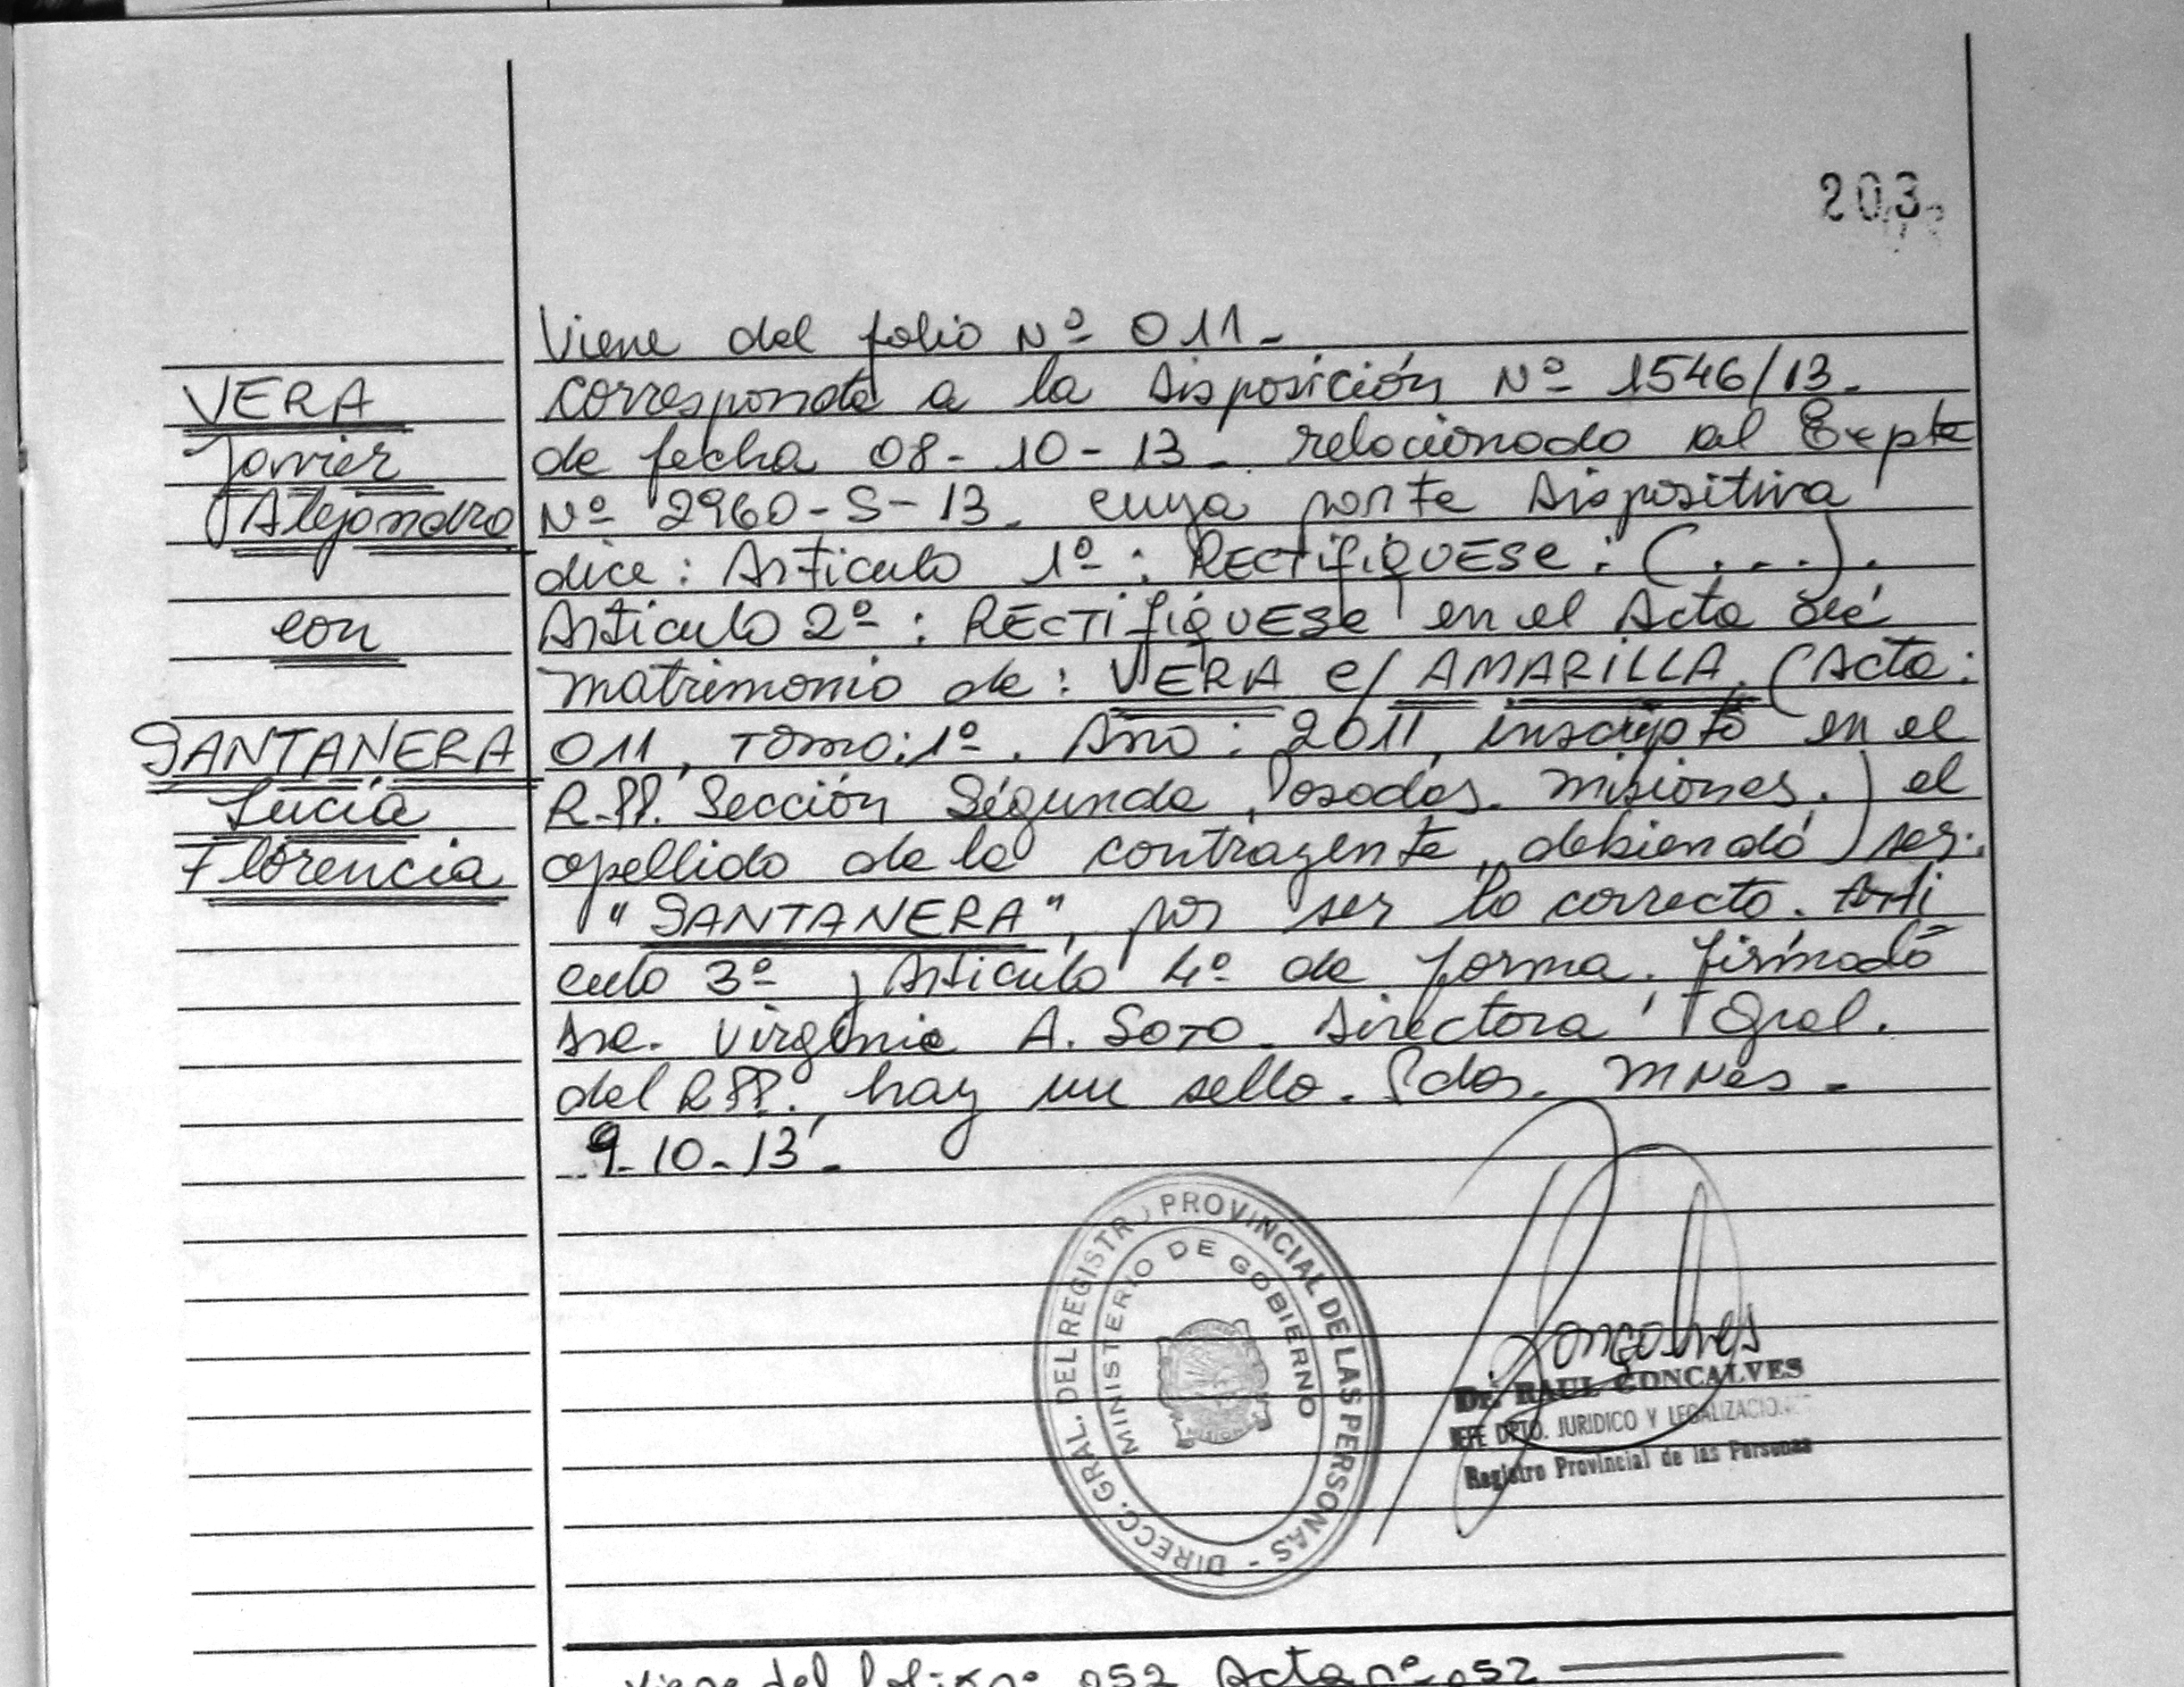 203
Viene del folio Nº 011.-
VERA
Javier
Alejandro
con
SANTANERA
Lucía
Florencia
corresponde a la Disposición Nº 1546/13.-
de fecha 08-10-13. relacionado al Expte
Nº 2960-S-13. cuya parte Dispositiva
dice: Articulo 1º: RECTIFIQUESE: (....).
Articulo 2º: RECTIFIQUESE en el Acta de
matrimonio de: VERA c/ AMARILLA. (Acta:
011, Tomo: 1º. Año: 2011, inscripto en el
R.PP. Sección Segunda, Posadas. Misiones.) el
apellido de la contrayente, debiendo ser:
"SANTANERA", por ser lo correcto. Arti
culo 3º y Articulo 4º de forma. Firmado
Dra. Virginia A. Soto. Directora Gral.
del RPP. hay un sello. Pdas. Mnes.-
9-10-13.-
DIRECC. GRAL. DEL REGISTRO PROVINCIAL DE LAS PERSONAS -
MINISTERIO DE GOBIERNO
Goncalves
Dr. RAUL GONCALVES
JEFE DPTO. JURIDICO Y LEGALIZACIONES
Registro Provincial de las Personas
Viene del folio nº 052 Acta nº 052